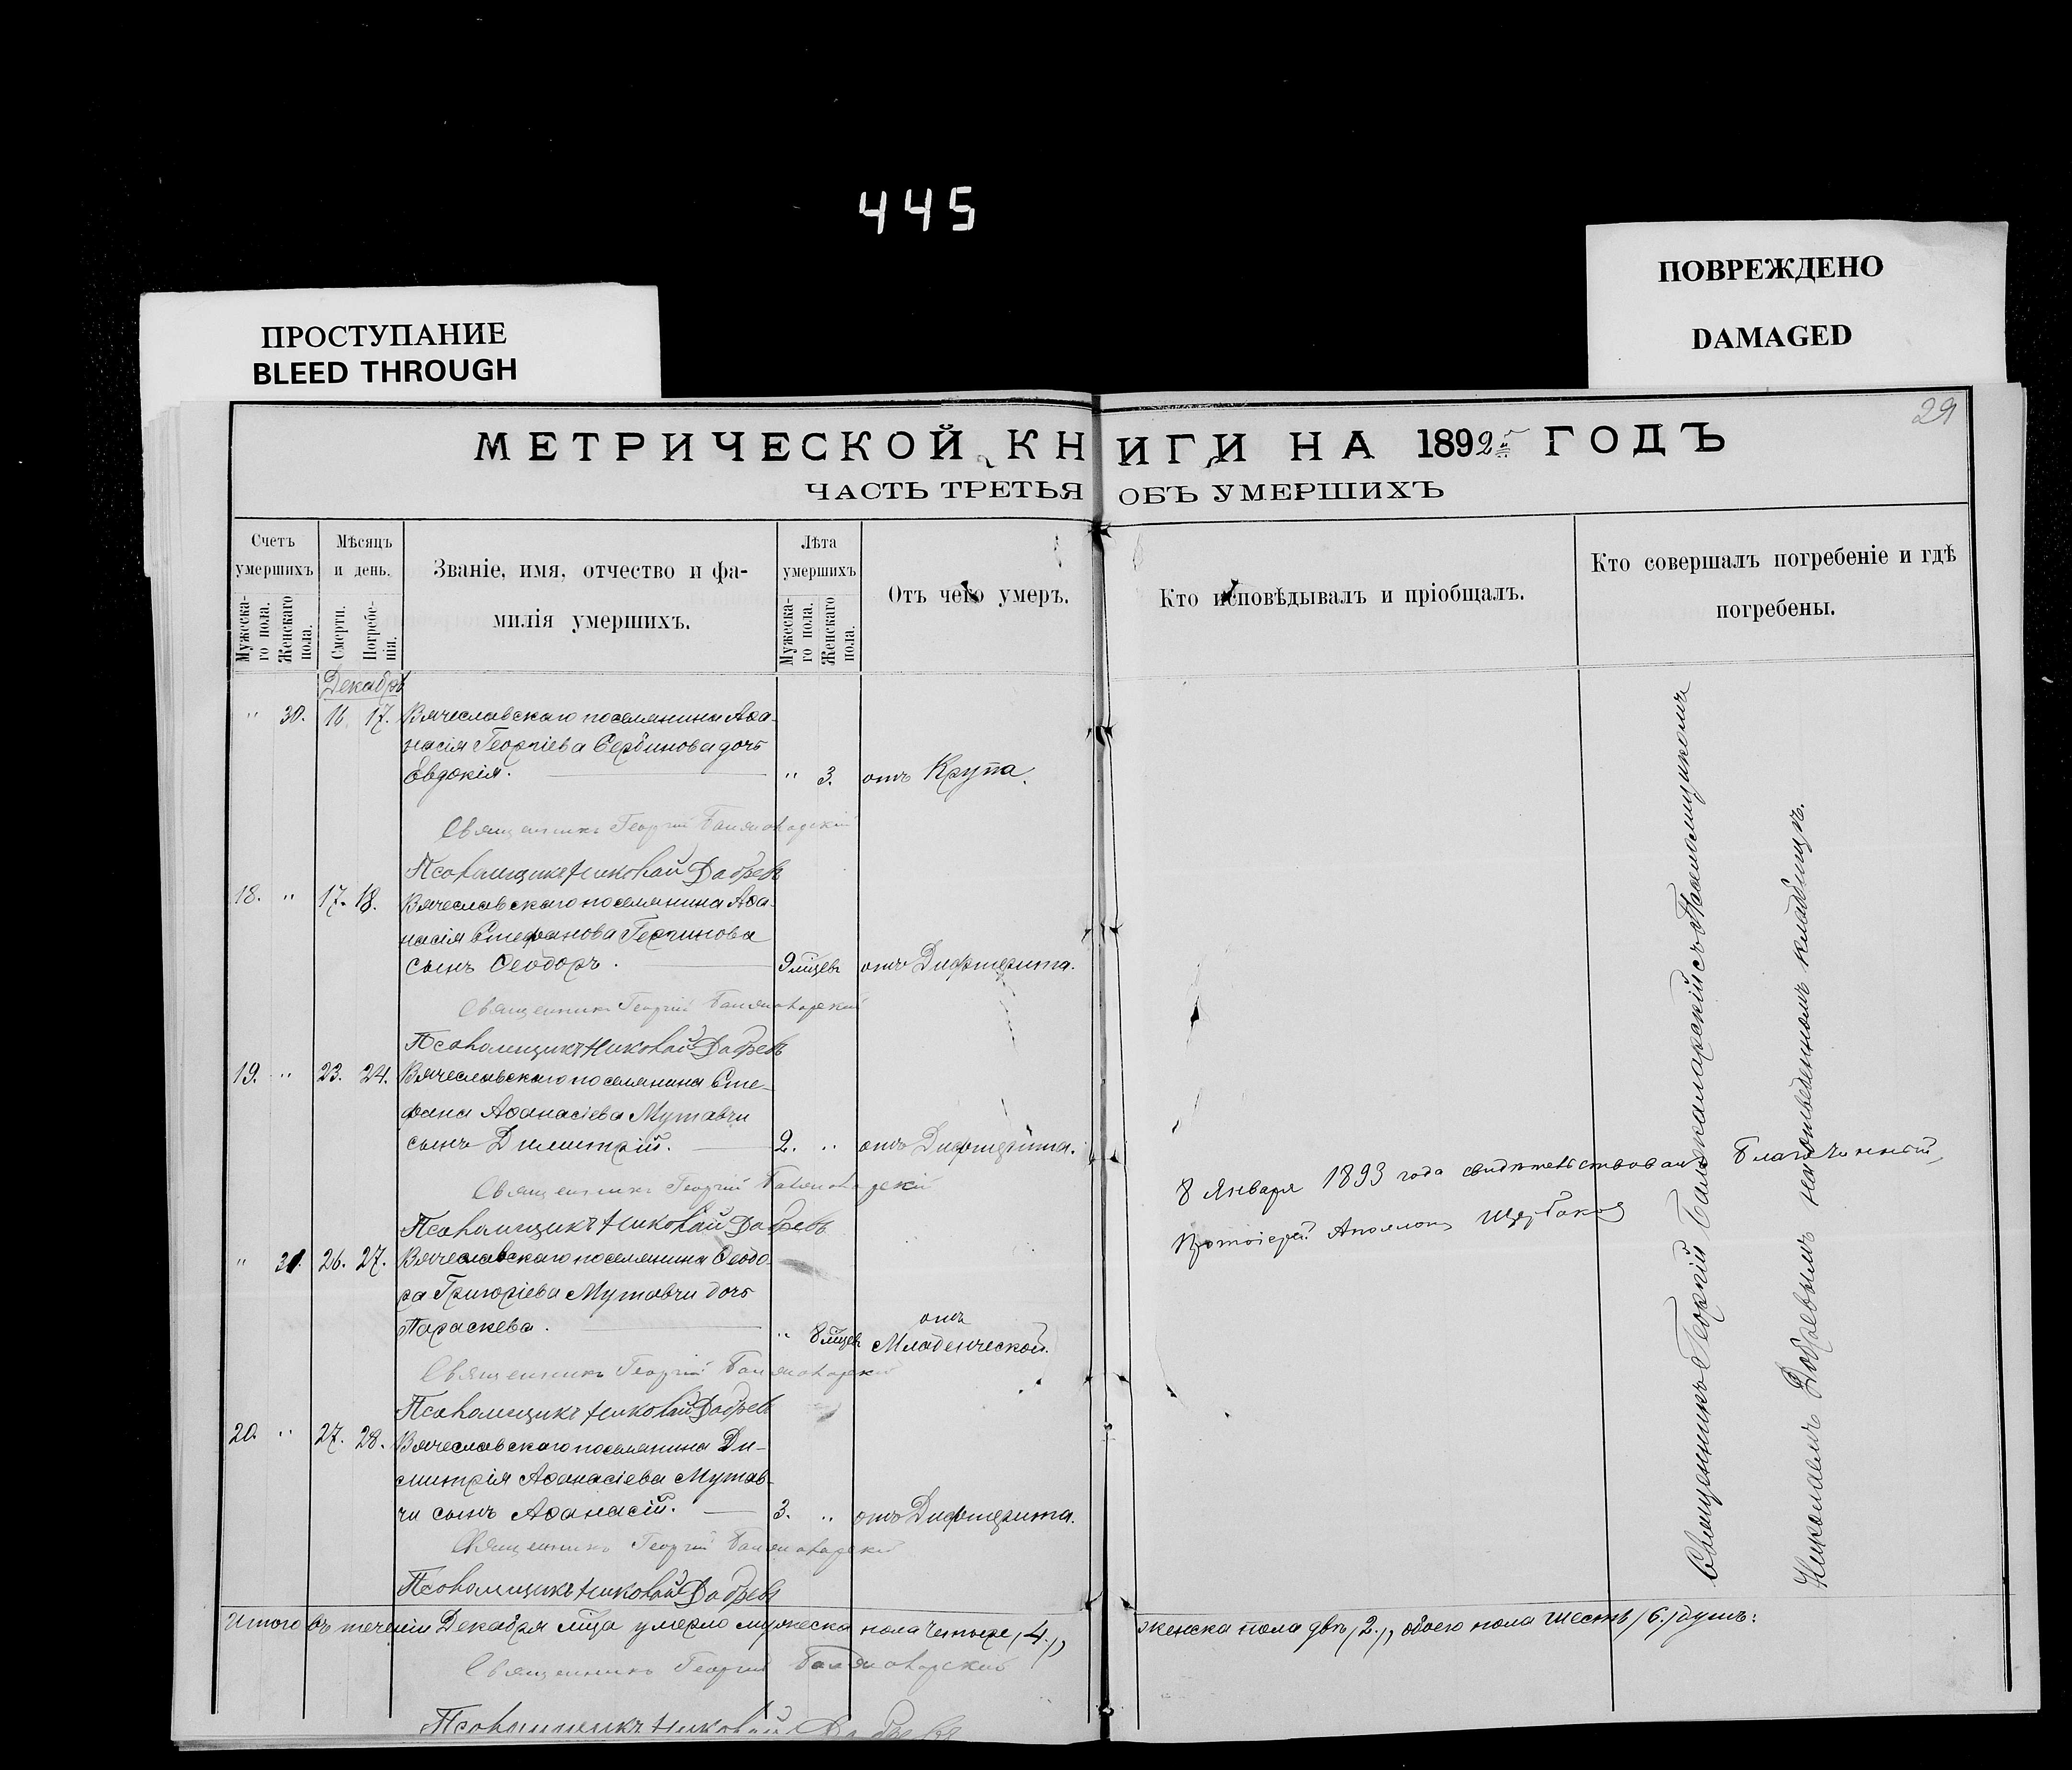 445
ПРОСТУПАНИЕ
BLEED THROUGH
ПОВРЕЖДЕНО
DAMAGED
29
МЕТРИЧЕСКОЙ КНИГИ НА 1892й ГОДЪ
ЧАСТЬ ТРЕТЬЯ ОБЪ УМЕРШИХЪ
Счетъ умершихъ
Мужеска-го пола.
Женскаго пола.
Мѣсяцъ и день.
Смерти.
Погребе-нія.
Званіе, имя, отчество и фа-
милія умершихъ.
Лѣта умершихъ
Мужеска-го пола.
Женскаго пола.
Отъ чего умеръ.
Кто исповѣдывалъ и пріобщалъ.
Кто совершалъ погребеніе и гдѣ
погребены.
Декабрь
" 30. 16 17. Вячеславскаго поселянина Аѳа-
насія Георгіева Сербинова дочь
Евдокія. " 3. отъ Крупа.
Священникъ Георгій
Псаломщикъ Николай Добревъ
18. " 17. 18. Вячеславскаго поселянина Аѳа-
насія Стефанова
сынъ Ѳеодоръ. 9 мцевъ отъ Дифтерита.
Священникъ Георгій
Псаломщикъ Николай Добревъ
19. " 23. 24. Вячеславскаго поселянина Сте-
фана Аѳанасіева Мутавчи
сынъ Димитрій. 2. " отъ Дифтерита.
Священникъ Георгій
Псаломщикъ Николай Добревъ
" 31. 26. 27. Вячеславскаго поселянина Ѳеодо-
ра Григоріева Мутавчи дочь
Параскева. " 8 мцевъ отъ Младенческой.
Священникъ Георгій
Псаломщикъ Николай Добревъ
20. " 27. 28. Вячеславскаго поселянина Ди-
митрія Аѳанасіева Мутав-
чи сынъ Аѳанасій. 3. " отъ Дифтерита.
Священникъ Георгій
Псаломщикъ Николай Добревъ
Итого въ теченіи Декабря мца умерло мужеска пола четыре /4./, женска пола двѣ /2./, обоего пола шесть /6./ душъ:
Священникъ Георгій
Псаломщикъ Николай Добревъ
8 Января 1893 года свидѣтельствовалъ Благочинный,
Протоіерей Аполлонъ Щербаковъ
Священникъ Георгій съ Псаломщикомъ
Николаемъ Добревымъ на отведенномъ кладбищѣ.